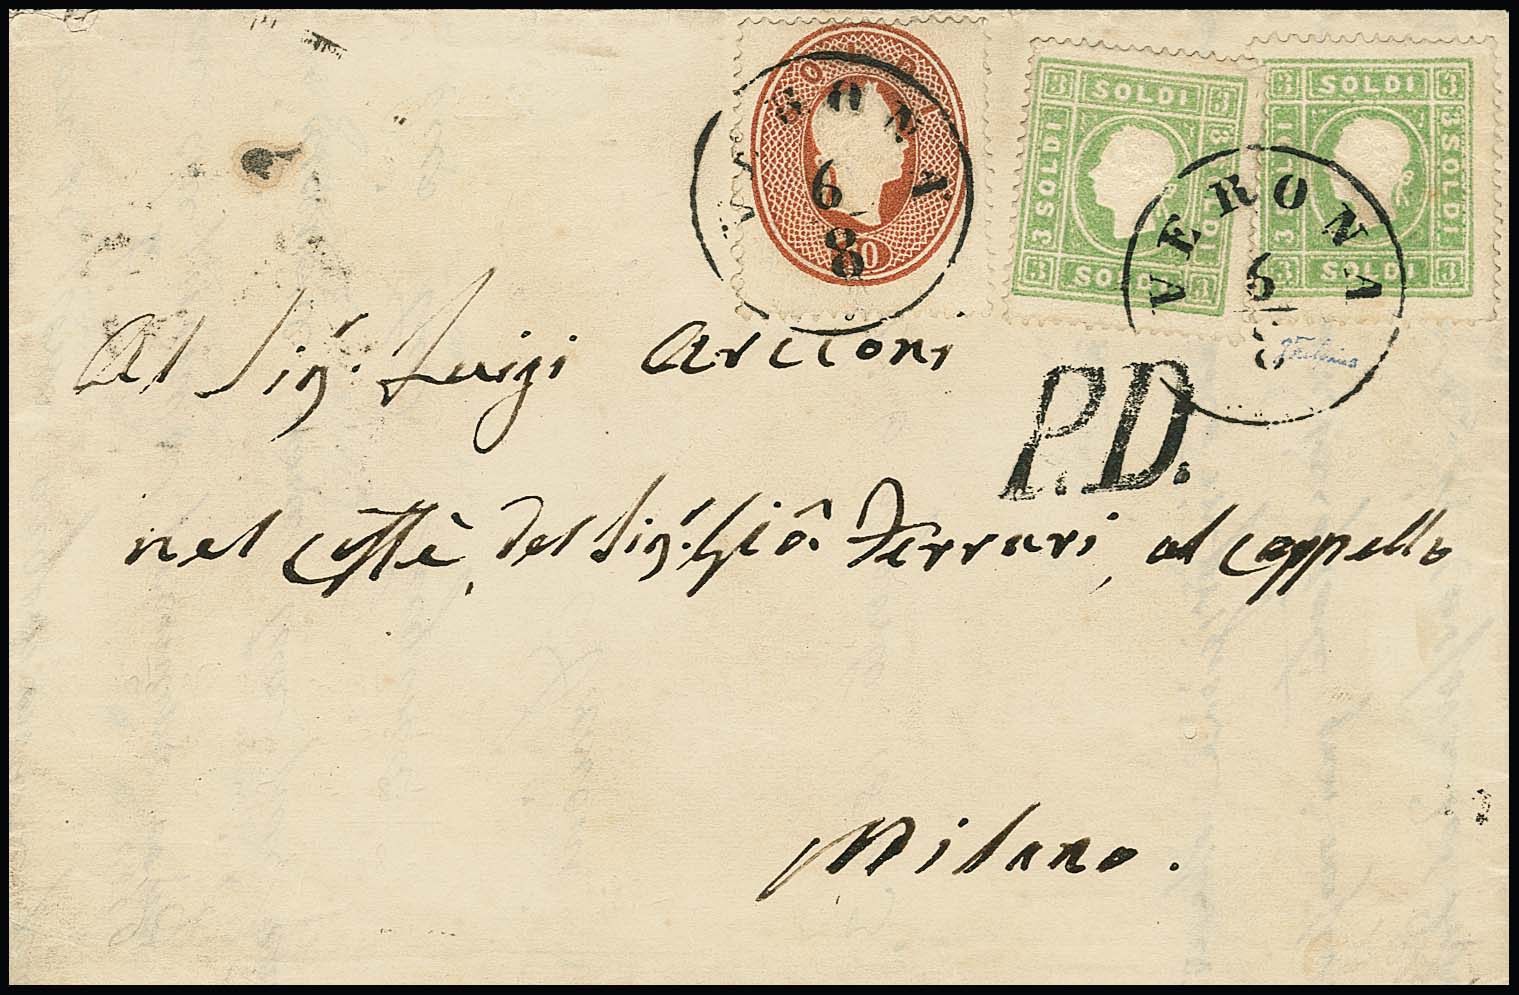 SOLDI
10
VERONA
6
8
3 SOLDI 3
3 SOLDI
SOLDI
3 SOLDI 3
3 SOLDI 3
3 SOLDI
SOLDI
3 SOLDI 3
VERONA
6
8
P.D.
Al Sigr. Luigi Arccioni
nel Caffè del Sigr. Giô. Ferrari, al Cappello
Milano.